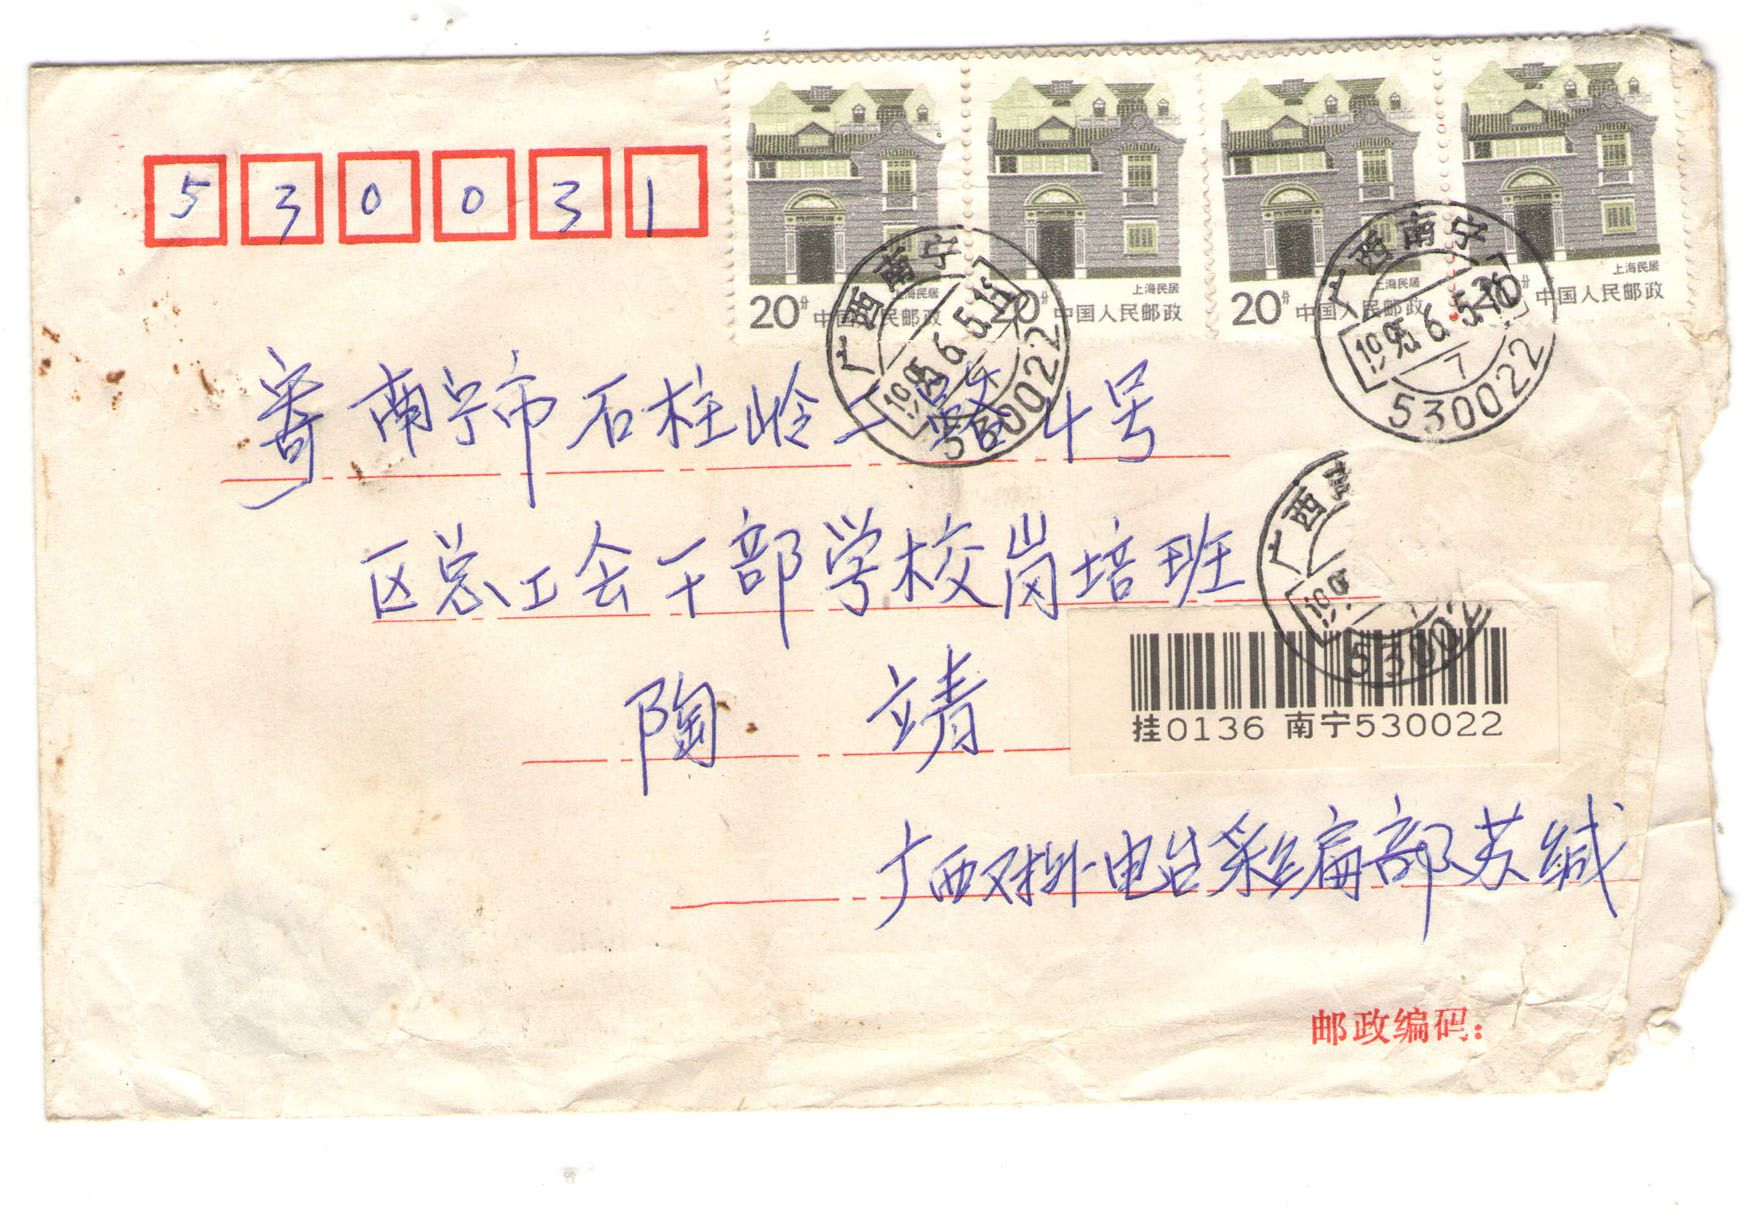 530031
上海民居
20分 中国人民邮政
上海民居
20分 中国人民邮政
上海民居
20分 中国人民邮政
上海民居
20分 中国人民邮政
广西南宁
1995.6.5
530022
广西南宁
1995.6.5
7
530022
寄 南宁市石柱岭一路十号
区总工会干部学校岗培班
陶 靖
广西
挂0136 南宁530022
广西对外电台采编部苏缄
邮政编码：